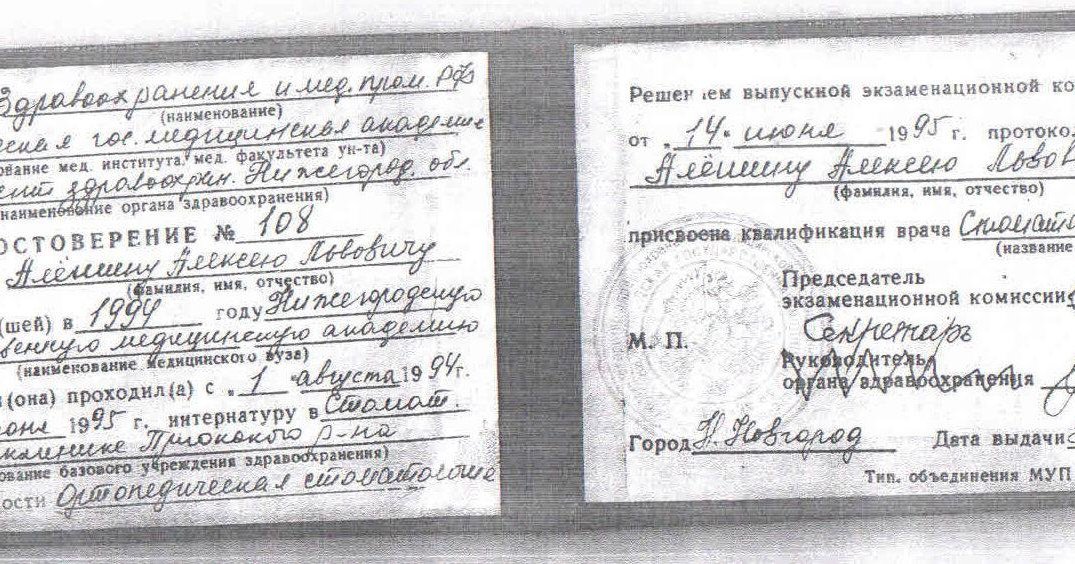 Здравоохранения и мед. пром. РФ
(наименование)
гос. медицинская академия
ование мед. института, мед. факультета ун-та)
здравоохран. Нижегород. обл.
наименование органа здравоохранения)
ОСТОВЕРЕНИЕ № 108
Алёшину Алексею Львовичу
(фамилия, имя, отчество)
(шей) в 1994 году Нижегородскую
венную медицинскую академию
(наименование медицинского вуза)
(она) проходил(а) с „1 " августа 1994г.
1995 г. интернатуру в Стомат.
клинике Приокского р-на
ование базового учреждения здравоохранения)
ости Ортопедическая стоматология
Решением выпускной экзаменационной ко
от „14" июня 1995 г. протокол
Алёшину Алексею Львов
(фамилия, имя, отчество)
присвоена квалификация врача Стомато
(название
Председатель
экзаменационной комиссии
Секретарь
М. П.
Руководитель
органа здравоохранения
Город Н. Новгород Дата выдачи
Тип. объединения МУП